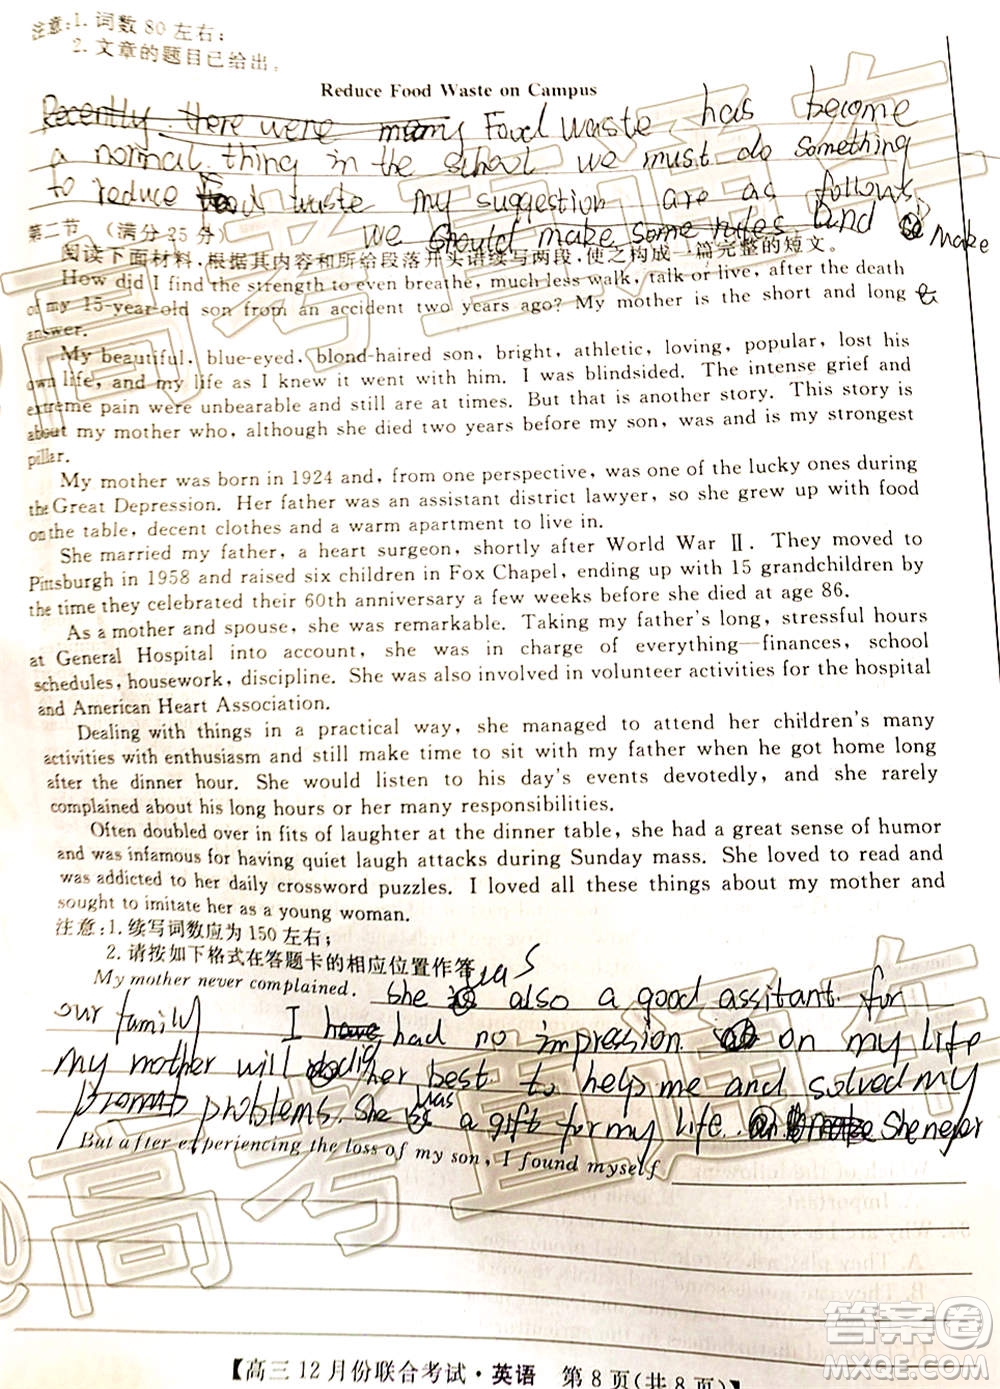 注意:1. 词数 80 左右;
2. 文章的题目已给出。
Reduce Food Waste on Campus
Recently, there were many Food waste has become
a normal thing in the school. we must do something
to reduce food waste my suggestion are as follows.
第二节 (满分 25 分) we should make some rules and make
阅读下面材料,根据其内容和所给段落开头语续写两段,使之构成一篇完整的短文。
How did I find the strength to even breathe, much less walk, talk or live, after the death
of my 15-year-old son from an accident two years ago? My mother is the short and long
answer.
My beautiful, blue-eyed, blond-haired son, bright, athletic, loving, popular, lost his
own life, and my life as I knew it went with him. I was blindsided. The intense grief and
extreme pain were unbearable and still are at times. But that is another story. This story is
about my mother who, although she died two years before my son, was and is my strongest
pillar.
My mother was born in 1924 and, from one perspective, was one of the lucky ones during
the Great Depression. Her father was an assistant district lawyer, so she grew up with food
on the table, decent clothes and a warm apartment to live in.
She married my father, a heart surgeon, shortly after World War Ⅱ. They moved to
Pittsburgh in 1958 and raised six children in Fox Chapel, ending up with 15 grandchildren by
the time they celebrated their 60th anniversary a few weeks before she died at age 86.
As a mother and spouse, she was remarkable. Taking my father's long, stressful hours
at General Hospital into account, she was in charge of everything—finances, school
schedules, housework, discipline. She was also involved in volunteer activities for the hospital
and American Heart Association.
Dealing with things in a practical way, she managed to attend her children's many
activities with enthusiasm and still make time to sit with my father when he got home long
after the dinner hour. She would listen to his day's events devotedly, and she rarely
complained about his long hours or her many responsibilities.
Often doubled over in fits of laughter at the dinner table, she had a great sense of humor
and was infamous for having quiet laugh attacks during Sunday mass. She loved to read and
was addicted to her daily crossword puzzles. I loved all these things about my mother and
sought to imitate her as a young woman.
注意:1. 续写词数应为 150 左右;
2. 请按如下格式在答题卡的相应位置作答。
My mother never complained. She was also a good assitant for
our family I had no impression on my life
my mother will her best to help me and solved my
problems. She was a gift for my life. She never
But after experiencing the loss of my son, I found myself
【高三 12 月份联合考试·英语 第 8 页(共 8 页)】